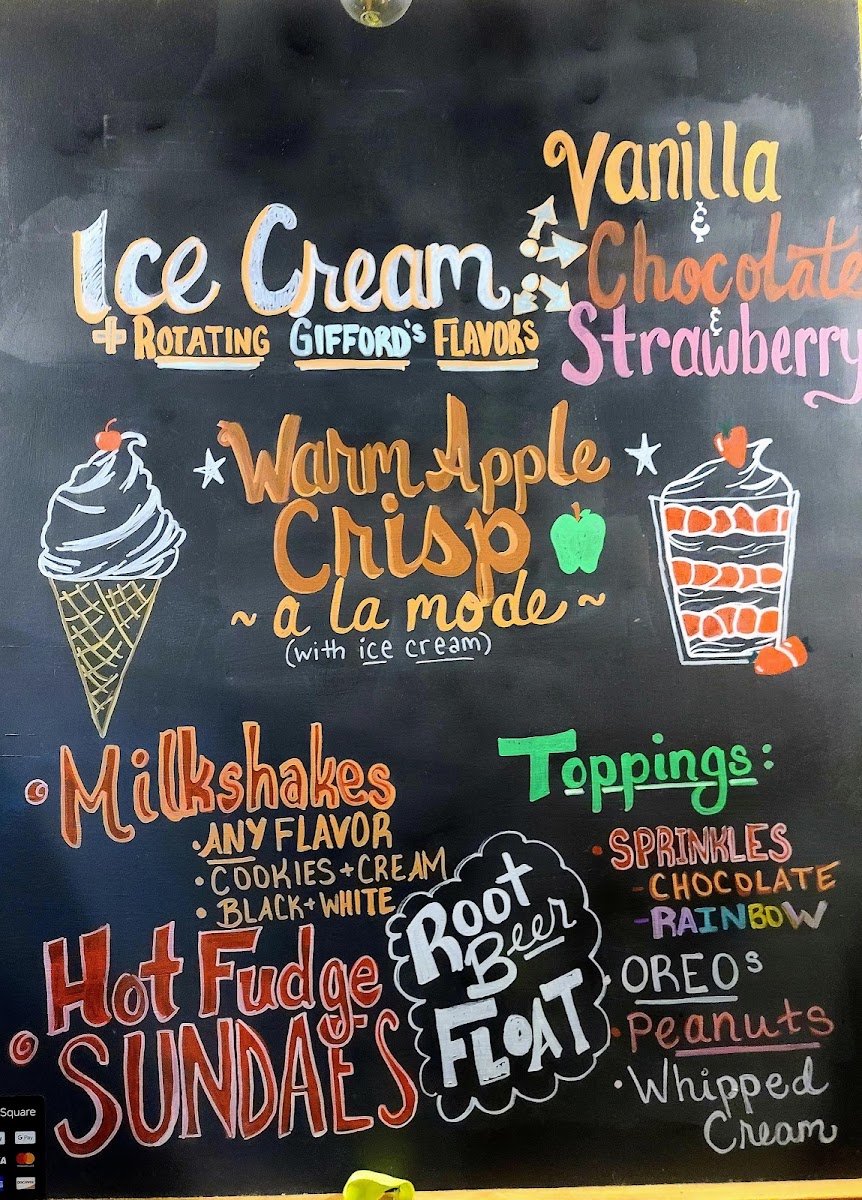 Vanilla
&
Chocolate
&
Strawberry
Ice Cream
+ ROTATING GIFFORD'S FLAVORS
Warm Apple
Crisp
~ a la mode ~
(with ice cream)
• Milkshakes
• ANY FLAVOR
• COOKIES + CREAM
• BLACK + WHITE
• Hot Fudge
SUNDAES
Root
Beer
FLOAT
Toppings:
• SPRINKLES
- CHOCOLATE
- RAINBOW
• OREOs
• Peanuts
• Whipped
Cream
Square
G Pay
mastercard
DISCOVER